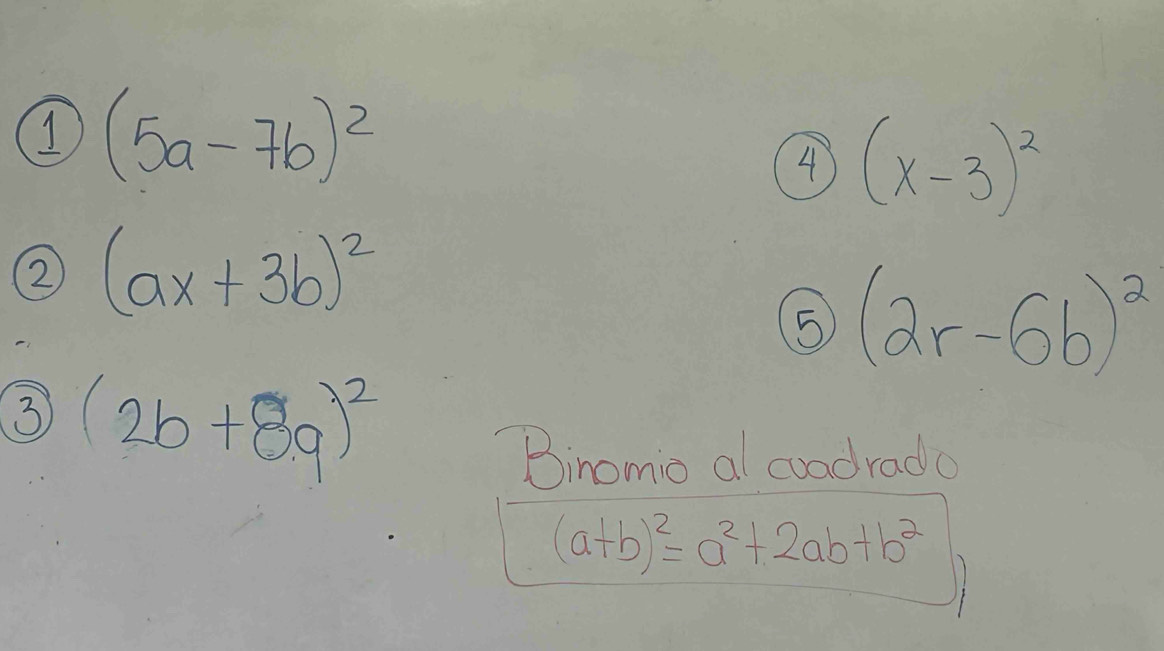 ① (5a-7b)²
② (ax+3b)²
③ (2b+8q)²
④ (x-3)²
⑤ (2r-6b)²
Binomio al cuadrado
(a+b)²=a²+2ab+b²